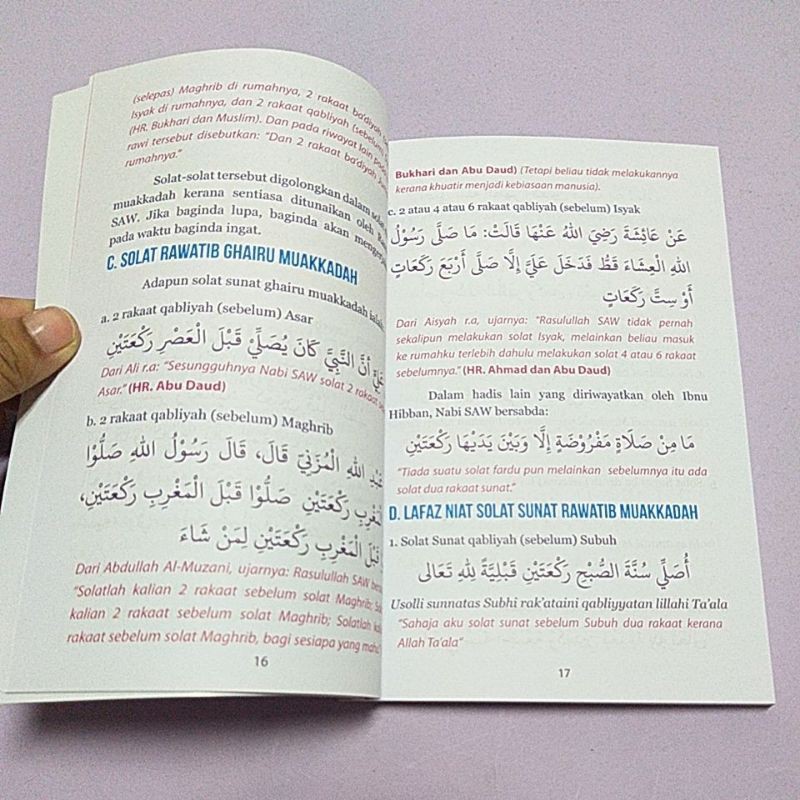 (selepas) Maghrib di rumahnya, 2 rakaat ba'diyah
Isyak di rumahnya, dan 2 rakaat qabliyah (sebelum)
(HR. Bukhari dan Muslim). Dan pada riwayat lain pada
rawi tersebut disebutkan: "Dan 2 rakaat ba'diyah
rumahnya."
Solat-solat tersebut digolongkan dalam
muakkadah kerana sentiasa ditunaikan oleh
SAW. Jika baginda lupa, baginda akan
pada waktu baginda ingat.
C. SOLAT RAWATIB GHAIRU MUAKKADAH
Adapun solat sunat ghairu muakkadah ialah
a. 2 rakaat qabliyah (sebelum) Asar
أَنَّ النَّبِيَّ كَانَ يُصَلِّيْ قَبْلَ الْعَصْرِ رَكْعَتَيْنِ
Dari Ali r.a: "Sesungguhnya Nabi SAW solat 2 rakaat
Asar." (HR. Abu Daud)
b. 2 rakaat qabliyah (sebelum) Maghrib
اللهِ الْمُزَنِيّ قَالَ، قَالَ رَسُوْلُ اللهِ صَلُّوْا
رَكْعَتَيْنِ صَلُّوْا قَبْلَ الْمَغْرِبِ رَكْعَتَيْنِ،
قَبْلَ الْمَغْرِبِ رَكْعَتَيْنِ لِمَنْ شَاءَ
Dari Abdullah Al-Muzani, ujarnya: Rasulullah SAW
"Solatlah kalian 2 rakaat sebelum solat Maghrib;
kalian 2 rakaat sebelum solat Maghrib; Solatlah
rakaat sebelum solat Maghrib, bagi sesiapa yang
16
Bukhari dan Abu Daud) (Tetapi beliau tidak melakukannya
kerana khuatir menjadi kebiasaan manusia).
c. 2 atau 4 atau 6 rakaat qabliyah (sebelum) Isyak
عَنْ عَائِشَةَ رَضِيَ اللهُ عَنْهَا قَالَتْ: مَا صَلَّى رَسُوْلُ
اللهِ الْعِشَاءَ قَطُّ فَدَخَلَ عَلَيَّ إِلَّا صَلَّى أَرْبَعَ رَكَعَاتٍ
أَوْ سِتَّ رَكَعَاتٍ
Dari Aisyah r.a, ujarnya: "Rasulullah SAW tidak pernah
sekalipun melakukan solat Isyak, melainkan beliau masuk
ke rumahku terlebih dahulu melakukan solat 4 atau 6 rakaat
sebelumnya." (HR. Ahmad dan Abu Daud)
Dalam hadis lain yang diriwayatkan oleh Ibnu
Hibban, Nabi SAW bersabda:
مَا مِنْ صَلَاةٍ مَفْرُوْضَةٍ إِلَّا وَبَيْنَ يَدَيْهَا رَكْعَتَيْنِ
"Tiada suatu solat fardu pun melainkan sebelumnya itu ada
solat dua rakaat sunat."
D. LAFAZ NIAT SOLAT SUNAT RAWATIB MUAKKADAH
1. Solat Sunat qabliyah (sebelum) Subuh
أُصَلِّي سُنَّةَ الصُّبْحِ رَكْعَتَيْنِ قَبْلِيَّةً لِلّٰهِ تَعَالَى
Usolli sunnatas Subhi rak'ataini qabliyyatan lillahi Ta'ala
"Sahaja aku solat sunat sebelum Subuh dua rakaat kerana
Allah Ta'ala"
17